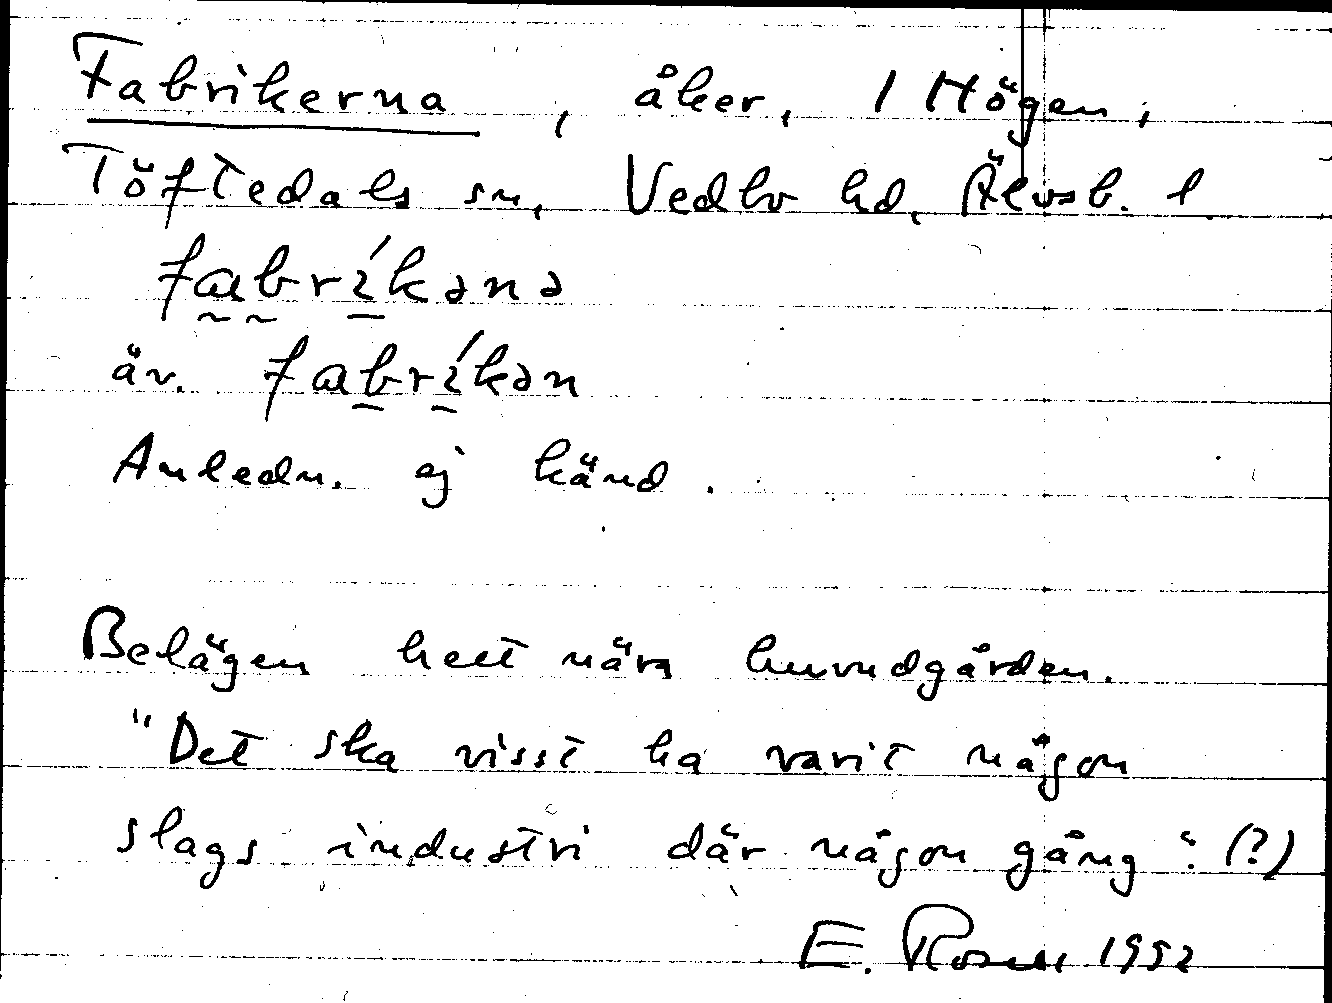 Fabrikerna, åker, 1 Högen,
Töftedals sn, Vedbo hd, Älvsb. l.
fabríkənə
äv. fabríkən
Anledn. ej känd.
Belägen helt nära huvudgården.
"Det ska visst ha varit någon
slags industri där någon gång". (?)
E. Rosell 1952